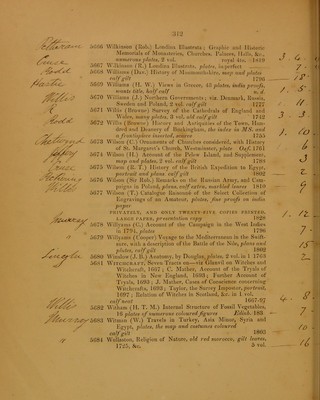 312
5666 Wilkinson (Rob.) Londina Illustrata; Graphic and Historic
Memorials of Monasteries, Churches, Palaces, Halls, &c.
2 vol. royal 4to. 1819
5667 Wilkinson (R.) Londina Illustrata, plates, imperfect
5668 Williams (Dav.) History of Monmouthshire, map and plates
calf gilt 1796
5669 Williams (H. W.) Views in Greece, plates, india proofs,
wants title, half calf n. d.
5670 Williams (J.) Northern Governments; viz. Denmark, Russia,
Sweden and Poland, 2 vol. calf gilt 1777
5671 Willis (Browne) Survey of the Cathedrals of England and
Wales, many plates, 3 vol. old calf gilt 1742
5672 Willis (Browne) History and Antiquities of the Town, Hundred
and Deanery of Buckingham, the index in MS. and
a frontispiece inserted, scarce 1755
5673 Wilson (C.) Ornaments of Churches considered, with History
of St. Margaret's Church, Westminster, plate Oxf. 1761
5674 Wilson (H.) Account of the Pelew Island, and Supplement,
map and plates, 2 vol. calf gilt 1788
5675 Wilson (R. T.) History of the British Expedition to Egypt
portrait and plans, calf gilt 1802
5676 Wilson (Sir Rob.) Remarks on the Russian Army, and Campaigns
in Poland, plans, calf extra, marbled leaves 1810
5677 Wilson (T.) Catalogue Raisonné of the Select Collection of
Engravings of an Amateur, plates, fine proofs on india
paper
PRIVATELY, AND ONLY TWENTY-FIVE COPIES PRINTED,
LARGE PAPER, presentation copy 1828
5678 Willyams (C.) Account of the Campaign in the West Indies
in 1794, plates 1796
5679 Willyams (Cooper) Voyage to the Mediterranean in the Swiftsure,
with a description of the Battle of the Nile, plans and
plates, calf gilt 1802
5680 Winslow (J. B.) Anatomy, by Douglas, plates, 2 vol. in 1 1763
5681 WITCHCRAFT, Seven Tracts on—viz. Glanvil on Witches and
Witchcraft, 1667; C. Mather, Account of the Tryals of
Witches in New England, 1693; Further Account of
Tryals, 1693; J. Mather, Cases of Conscience concerning
Witchcrafts, 1693; Taylor, the Surey Impostor, portrait,
1697; Relation of Witches in Scotland, &c. in 1 vol.
calf neat 1667-97
5682 Witham (H. T. M.) Internal Structure of Fossil Vegetables,
16 plates of numerous coloured figures Edinb. 183
5683 Witman (W.) Travels in Turkey, Asia Minor, Syria and
Egypt, plates, the map and costumes coloured
calf gilt 1803
5684 Wollaston, Religion of Nature, old red morocco, gilt leaves,
1725, &c. 5 vol.